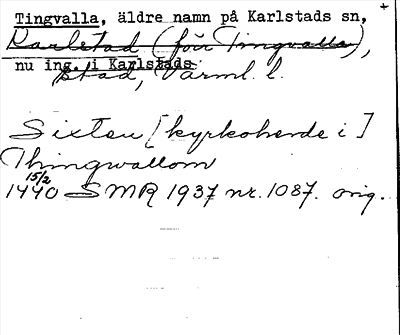 Tingvalla, äldre namn på Karlstads sn,
Karlstad (förr Tingvalla),
nu ing. i Karlstads
stad, Värml. l.
Sixten [kyrkoherde i]
Thingwallom
15/2
1440 SMR 1937 nr. 1087. orig.